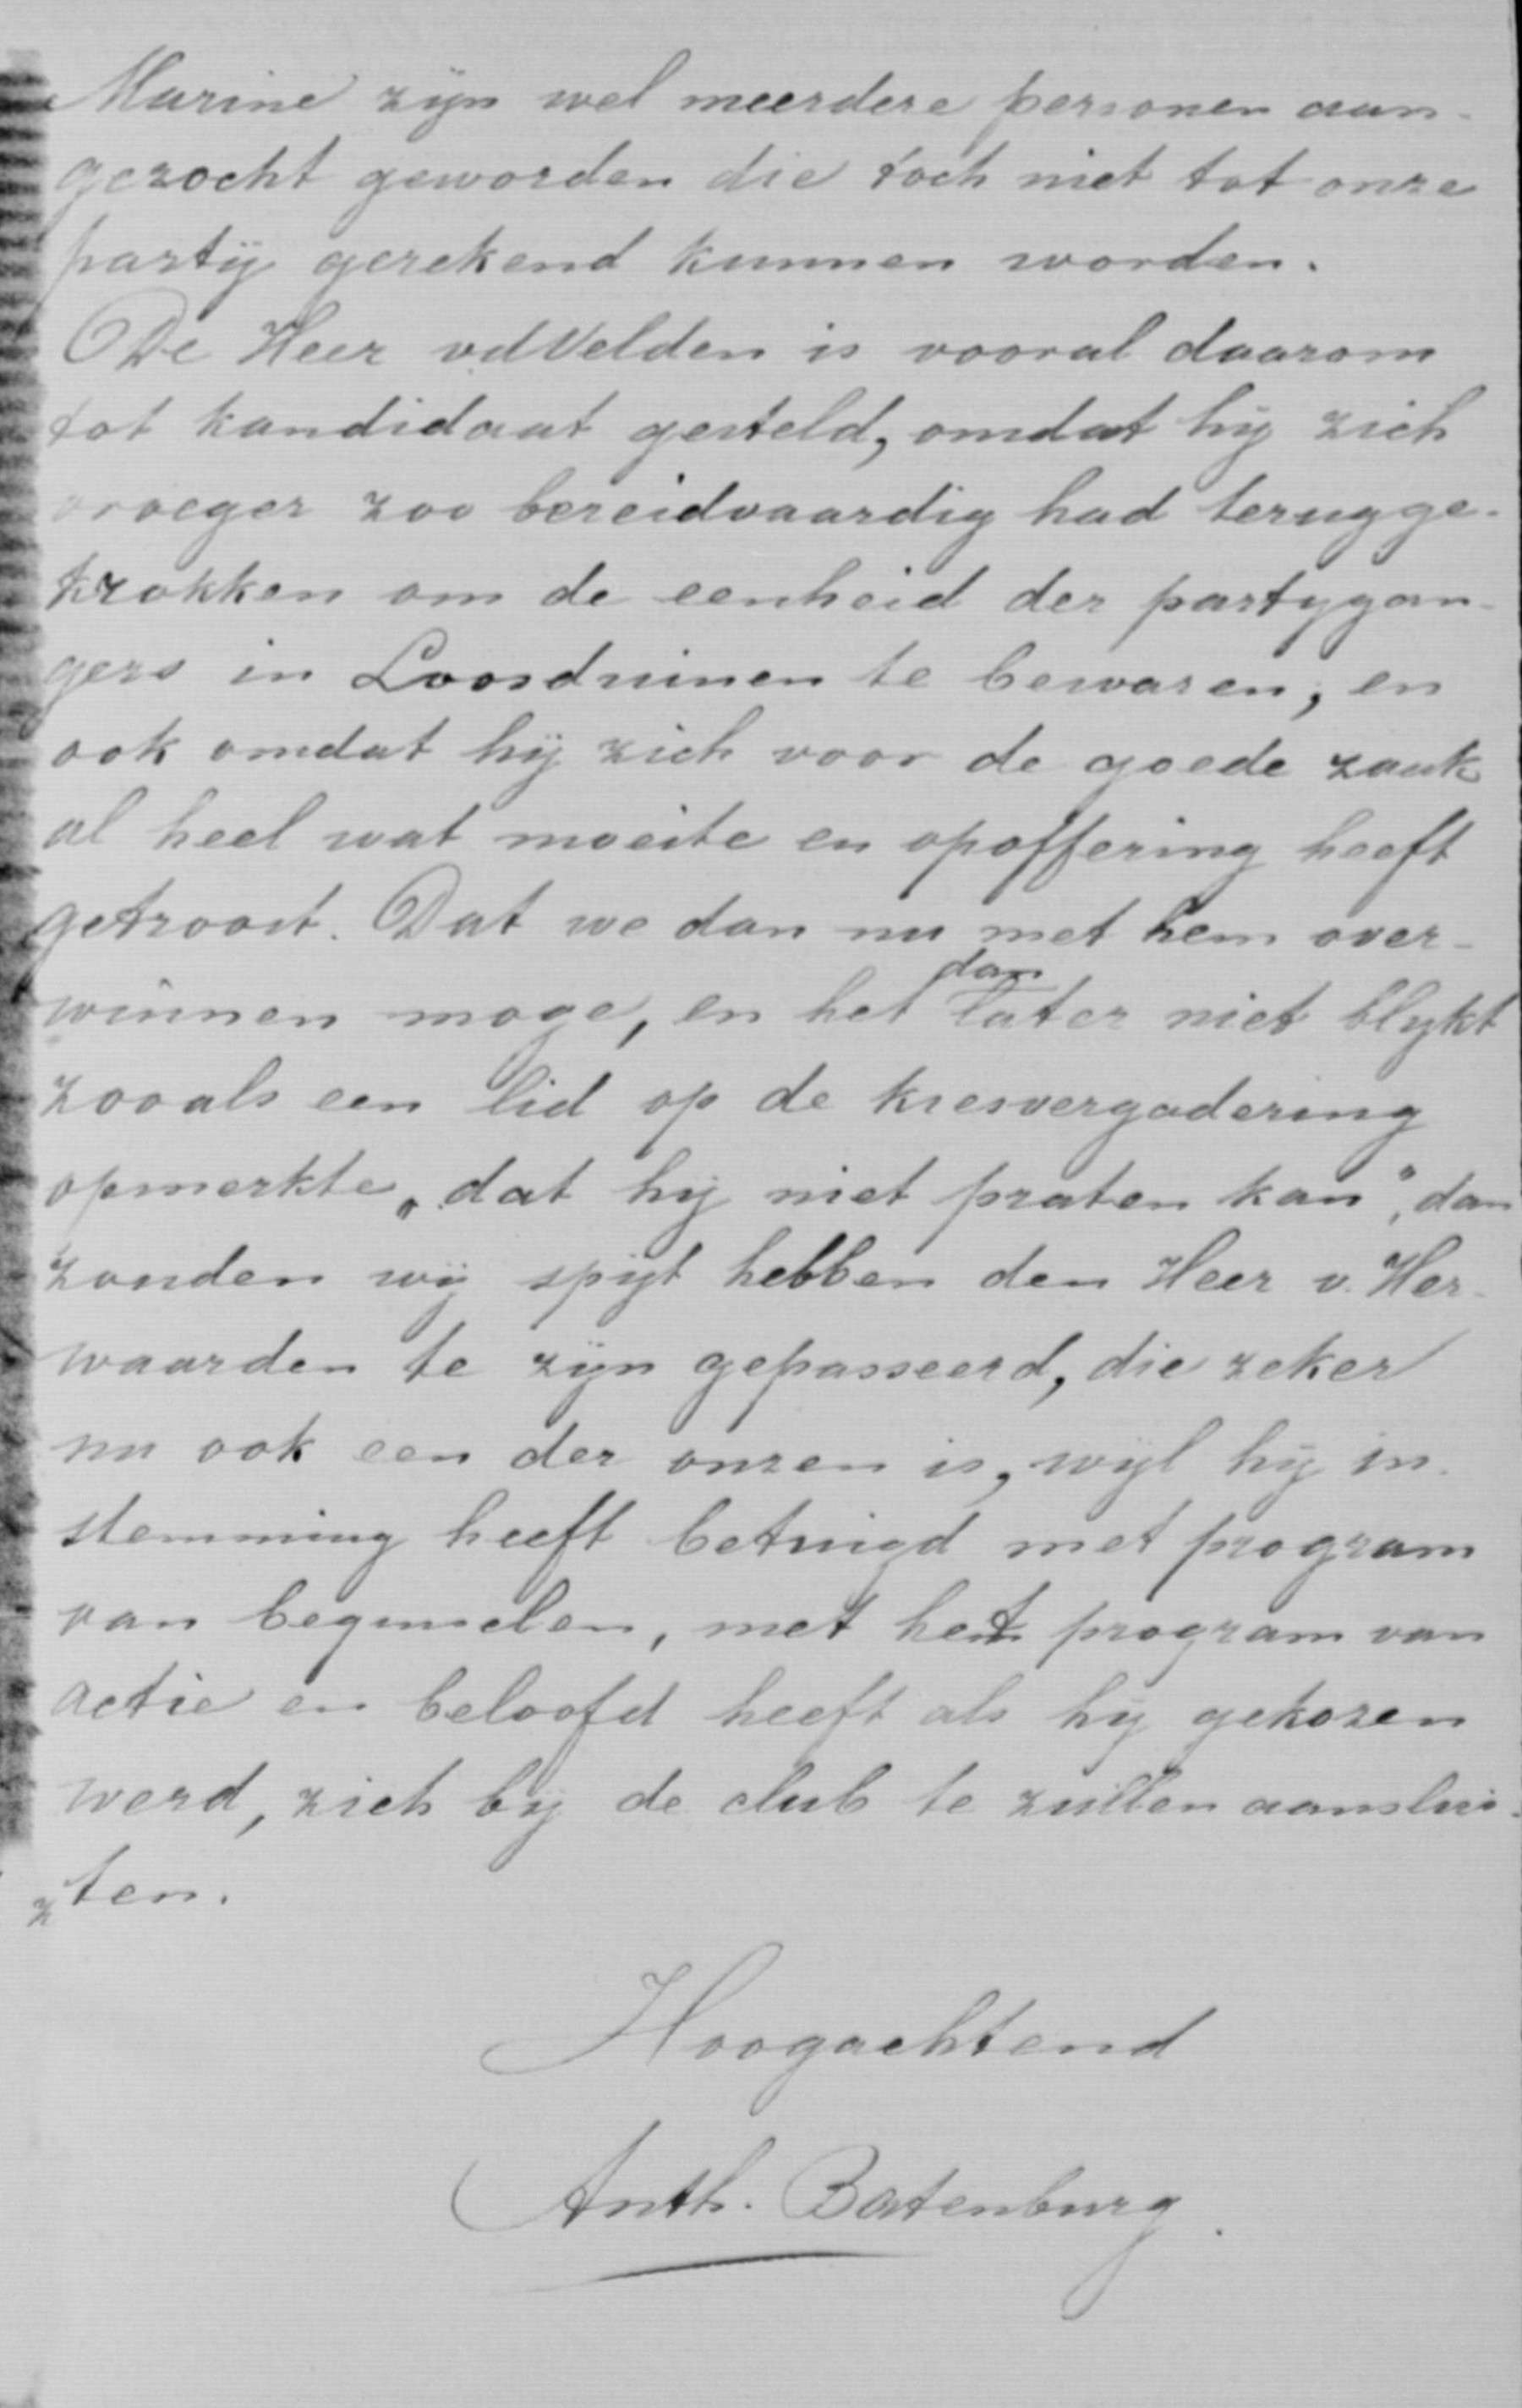 Marine zijn wel meerdere personen aan-
gezocht geworden die toch niet tot onze
partij gerekend kunnen worden.
De Heer vdVelden is vooral daarom
tot kandidaat gesteld, omdat hij zich
vroeger zoo bereidvaardig had terugge-
trokken om de eenheid der partygan-
gers in Loosduinen te bewaren, en
ook omdat hij zich voor de goede zaak
al heel wat moeite en opoffering heeft
getroost. Dat we dan nu met hem over-
winnen moge, en het dan later niet blykt
zooals een lid op de kiesvergadering
opmerkte „dat hij niet praten kan", dan
zouden wij spijt hebben den Heer v. Her-
waarden te zijn gepasseerd, die zeker
nu ook een der onzen is, wijl hij in-
stemming heeft betuigd met program
van beginselen, met het program van
actie en beloofd heeft als hij gekozen
werd, zich bij de club te zullen aanslui-
ten.
Hoogachtend
Anth. Batenburg.